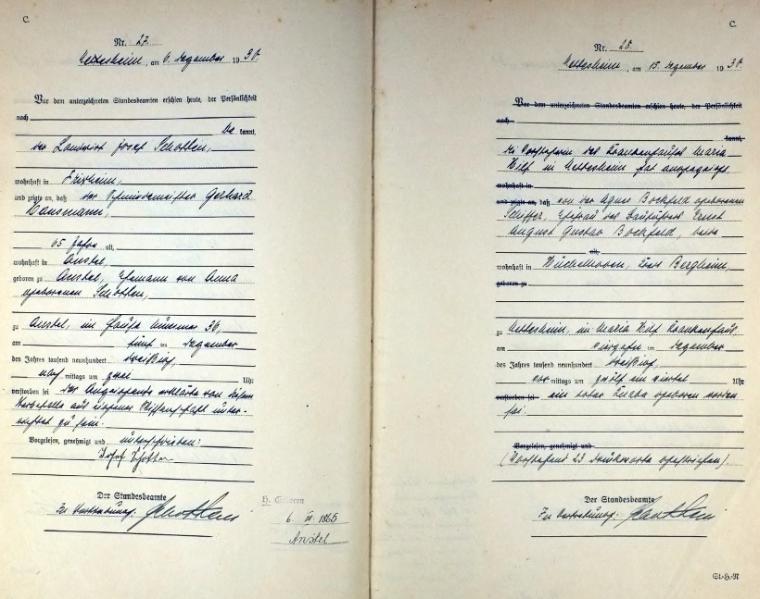 C.
Nr. 27.
Nettesheim, am 6. Dezember 1930.
Vor dem unterzeichneten Standesbeamten erschien heute, der Persönlichkeit
nach
be kannt,
der Landwirt Josef Schotten,
wohnhaft in
und zeigte an, daß der Schmiedemeister Gerhard
65 Jahre alt,
wohnhaft in Anstel,
geboren zu Anstel, Ehemann von Anna
geborenen Schotten,
zu Anstel, im Hause Nummer 36,
am fünf ten Dezember
des Jahres tausend neunhundert dreißig,
nach mittags um zwei Uhr
verstorben sei. Der Angezeigende erklärte von diesem
Sterbefalle aus eigener Wissenschaft unter-
richtet zu sein.
Vorgelesen, genehmigt und unterschrieben:
Josef Schotten
Der Standesbeamte
In Vertretung:
H. Geboren
6. III. 1865
Anstel
C.
Nr. 28.
Nettesheim, am 15. Dezember 1930.
Vor dem unterzeichneten Standesbeamten erschien heute, der Persönlichkeit
nach
kannt,
Die Vorsteherin des Krankenhauses Maria
Hilf in Nettesheim hat angezeigt,
wohnhaft in
und zeigte an, daß von der Agnes Bockfeld geborenen
Schiffer, Ehefrau des Ernst
August Gustav Bockfeld, beide
alt,
wohnhaft in Büchelhoven, Kreis Bergheim,
geboren zu
zu Nettesheim, im Maria Hilf Krankenhaus,
am ten Dezember
des Jahres tausend neunhundert dreißig
vor mittags um zwölf ein viertel Uhr
verstorben sei ein toter Knabe geboren worden
sei.
Vorgelesen, genehmigt und
(Vorstehend 23 Druckworte gestrichen).
Der Standesbeamte
In Vertretung:
St.-H.-N